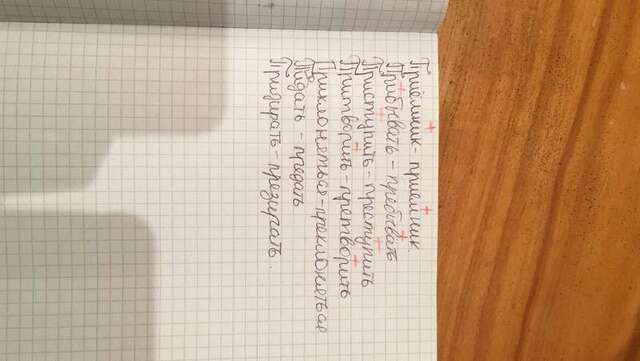 Приёмник - приемник
Прибывать - пребывать
Приступить - преступить
Притворить - претворить
Приклоняться - преклоняться
Придать - предать
Призирать - презирать.